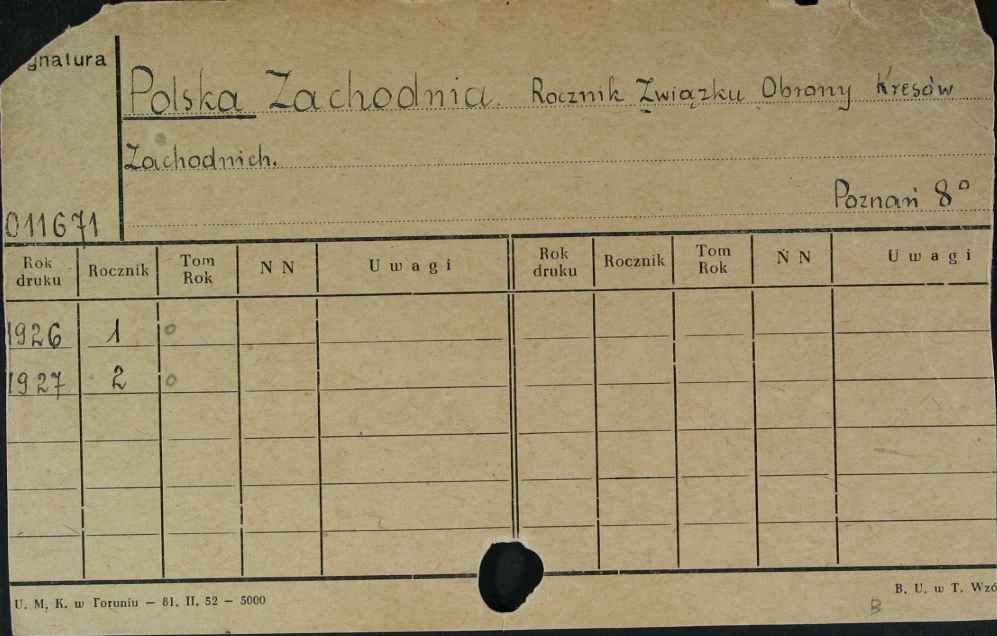 gnatura
Polska Zachodnia. Rocznik Związku Obrony Kresów
Zachodnich.
Poznań 8°
011671
Rok druku Rocznik Tom Rok N N Uwagi Rok druku Rocznik Tom Rok N N Uwagi
1926 1 o
1927 2 o
U. M. K. w Toruniu — 81. II. 52 — 5000
B. U. w T. Wzó
B